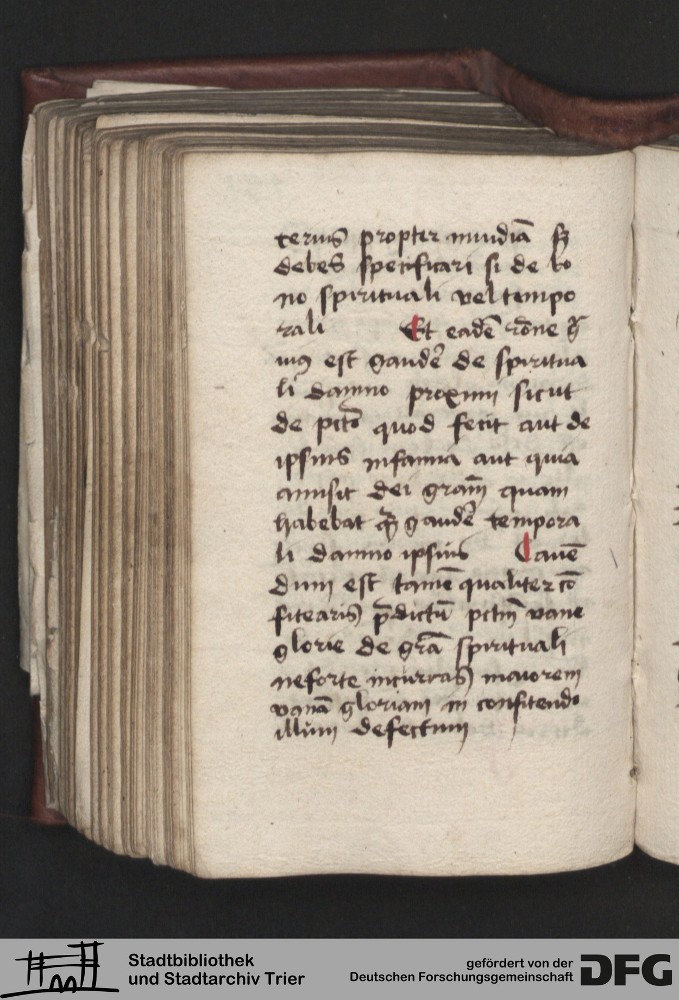 terius propter inuidiā sꝫ
debes specificari si de bo
no spirituali vel tempo
rali Et eadē rōne g̃
uiꝰ est gaudẽ de spiritua
li damno proximi sicut
de pctō quod fecit aut de
ipsius infamia aut quia
amisit dei gram̄ quam
habebat q̃ gaudẽ tempora
li damno ipsius Cauē
dum est tamē qualiter cō
fitearis p̄dictū pctm̄ vane
glorie de grā spirituali
neforte incurras maiorem
vanā gloriam in confitendo
illum defectum
Stadtbibliothek
und Stadtarchiv Trier
gefördert von der
Deutschen Forschungsgemeinschaft
DFG